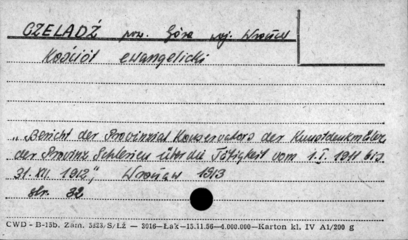 CZELADŹ pow. Góra woj. Wrocław
Kościół ewangelicki
"Bericht der Provinzial Konservators der Kunstdenkmäler
der Provinz Schlesien über die Tätigkeit vom 1.I. 1911 bis
31.XII. 1912", Wrocław 1913
str. 32
CWD - B-15b. Zam. S/Łż — 3016—Łak—15.11.56—4.000.000—Karton kl. IV A1/200 g